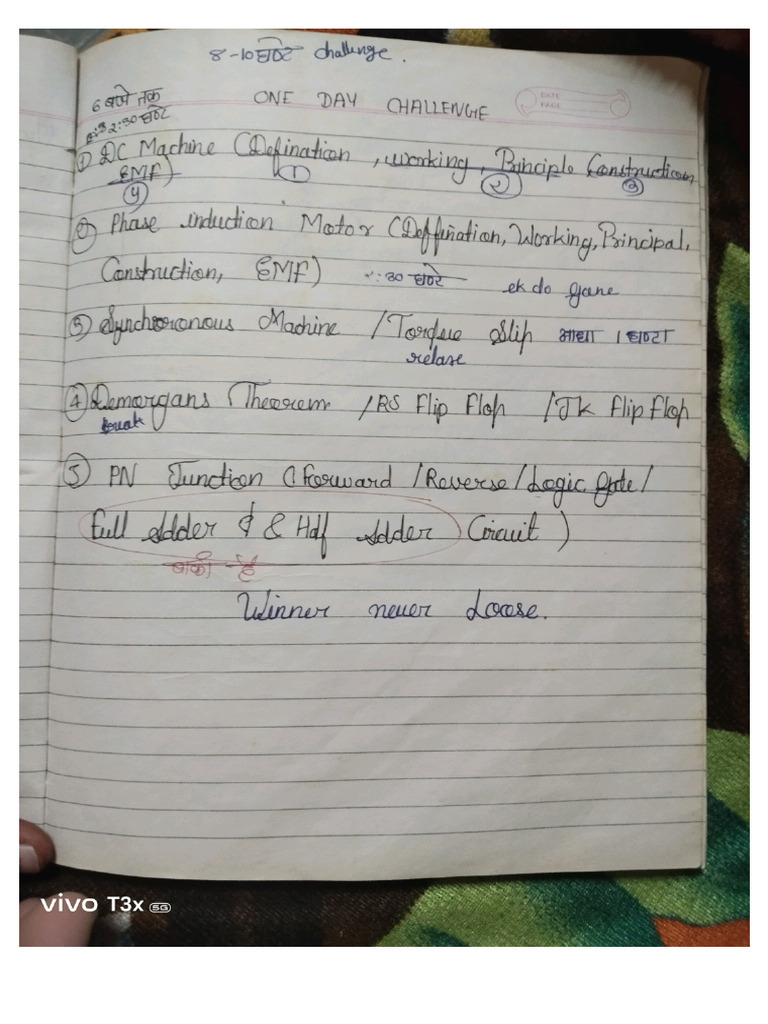 8-10 घण्टे challenge.
6 बजे तक
ONE DAY CHALLENGE
DATE
PAGE
2:30 घण्टे
① DC Machine (Defination, working, Principle Construction,
EMF)
① ② ③
④
② Phase induction Motor (Deffination, Working, Principal,
Construction, EMF) :30 घण्टे ek do gane
③ Synchoronous Machine / Torque Slip आधा 1 घण्टा
relase
④ Demorgans Theorem / RS Flip Flop / JK Flip Flop
break
⑤ PN Junction (Forward / Reverse / Logic gate /
Full Adder & & Half Adder Circuit)
बाकी है
Winner never Loose.
vivo T3x 5G